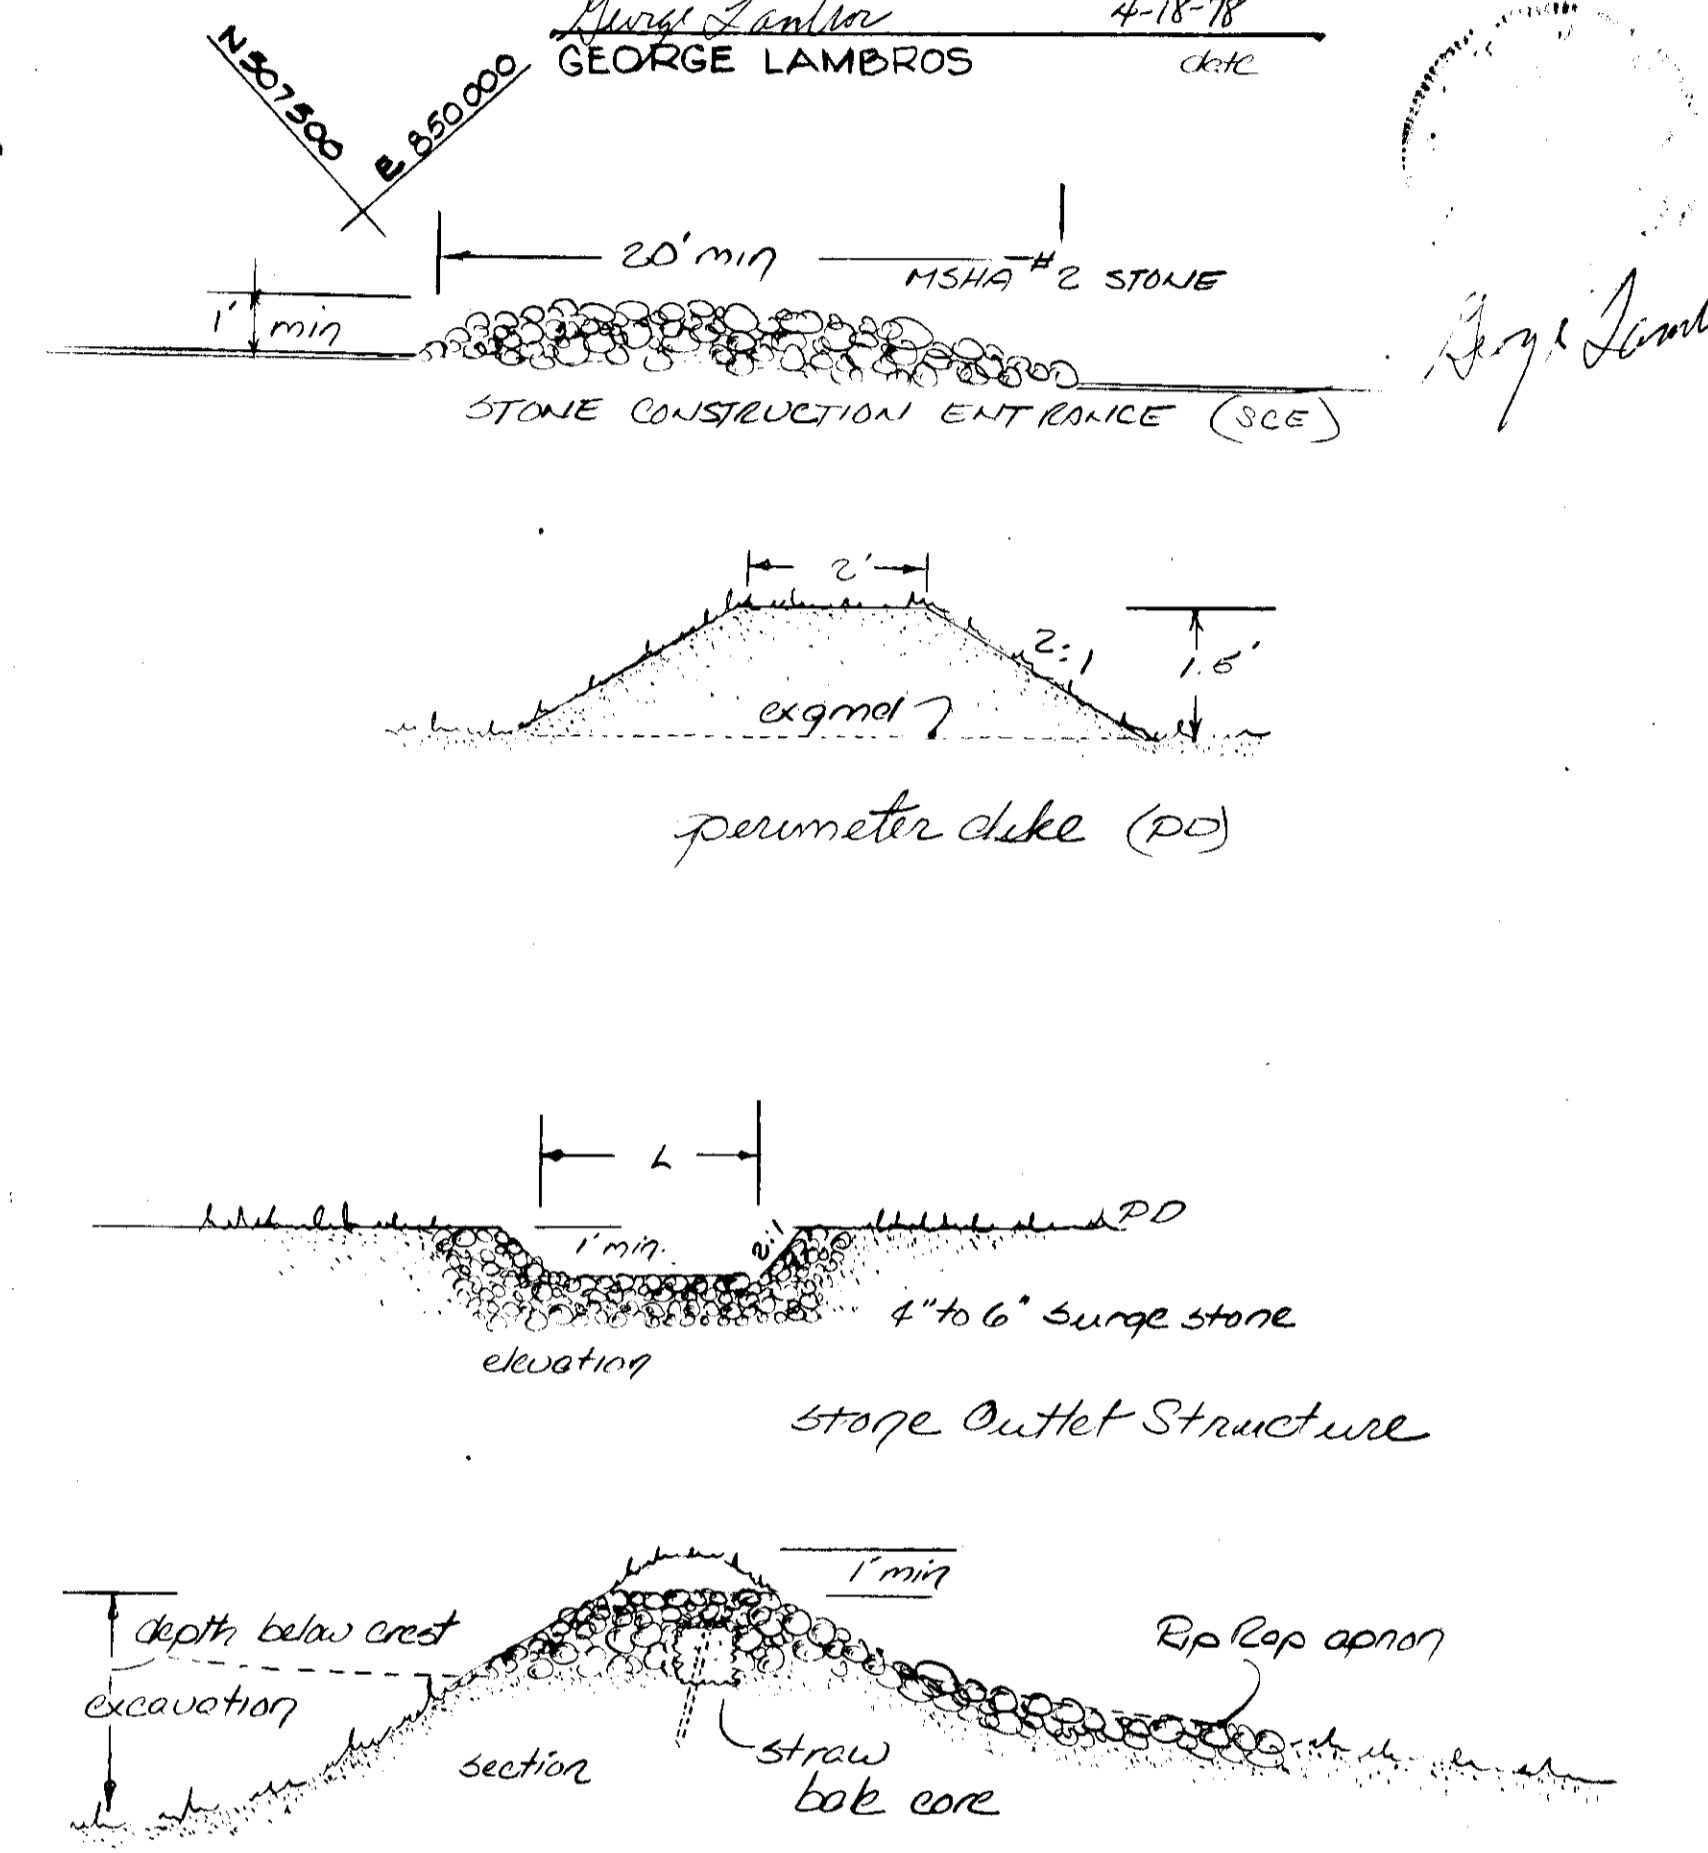 George Lambros 4-18-78
GEORGE LAMBROS date
N507500
E 850000
20' min
MSHA #2 STONE
1' min
STONE CONSTRUCTION ENTRANCE (SCE)
George
2'
2:1
1.5'
ex grnd
perimeter dike (PD)
L
PD
1' min.
2:1
4" to 6" surge stone
elevation
Stone Outlet Structure
1' min
depth below crest
Rip Rap apron
excavation
section
straw
bale core